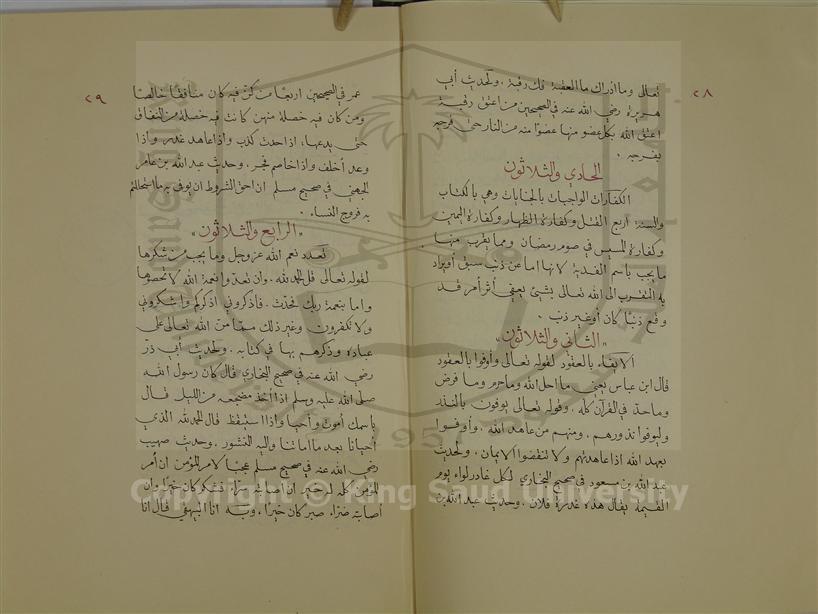 ٢٨
تعالى وما ادراك ما العقبة فك رقبة . ولحديث أبي
هريرة رضي الله عنه في الصحيحين من اعتق رقبة
اعتق الله بكل عضو منها عضوا منه من النار حتى فرجه
بفرجه .
الحادي والثلاثون
الكفارات الواجبات بالجنايات وهي بالكتاب
والسنة اربع القتل وكفارة الظهار وكفارة اليمين
وكفارة المسيس في صوم رمضان ومما يقرب منها
ما يجب باسم الفدية لانها اما عن ذنب سبق أو يراد
به التقرب الى الله تعالى بشيئ يعني أثر أمر قد
وقع ذنبا كان أو غير ذنب .
"الثاني والثلاثون"
الايفاء بالعقود لقوله تعالى وأوفوا بالعقود
قال ابن عباس يعني ما احل الله وما حرم وما فرض
وما حد في القرآن كله . وقوله تعالى يوفون بالنذر
وليوفوا نذورهم . ومنهم من عاهد الله . وأوفوا
بعهد الله اذا عاهدتم ولا تنقضوا الايمان . ولحديث
عبد الله بن مسعود في صحيح البخاري لكل غادر لواء يوم
القيمة يقال هذه غدرة فلان . وحديث عبد الله بن
٢٩
عمر في الصحيحين اربعا من كن فيه كان منافقا خالصا
ومن كان فيه خصلة منهن كانت فيه خصلة من النفاق
حتى يدعها . اذا حدث كذب واذا عاهد غدر واذا
وعد أخلف واذا خاصم فجر . وحديث عبد الله بن عامر
الجهني في صحيح مسلم ان احق الشروط ان يوفى به ما استحللتم
به فروج النساء .
"الرابع والثلاثون"
تعدد نعم الله عز وجل وما يجب من شكرها
لقوله تعالى قل الحمد لله . وان تعدوا نعمة الله لا تحصوها
واما بنعمة ربك فحدث . فاذكروني اذكركم واشكروني
ولا تكفرون وغير ذلك مما من الله تعالى على
عباده وذكرهم بها في كتابه . ولحديث أبي ذر
رضي الله عنه في صحيح البخاري قال كان رسول الله
صلى الله عليه وسلم اذا أخذ مضجعه من الليل قال
باسمك أموت وأحيا واذا استيقظ قال الحمد لله الذي
أحيانا بعد ما اماتنا واليه النشور . وحديث صهيب
رضي الله عنه في صحيح مسلم عجبا لامر المؤمن ان أمر
المؤمن كله له خير ان أصابته سراء فشكر كان خيرا وان
أصابته ضراء صبر كان خيرا . وبه انا البيهقي قال انا
Copyright © King Saud University
1957